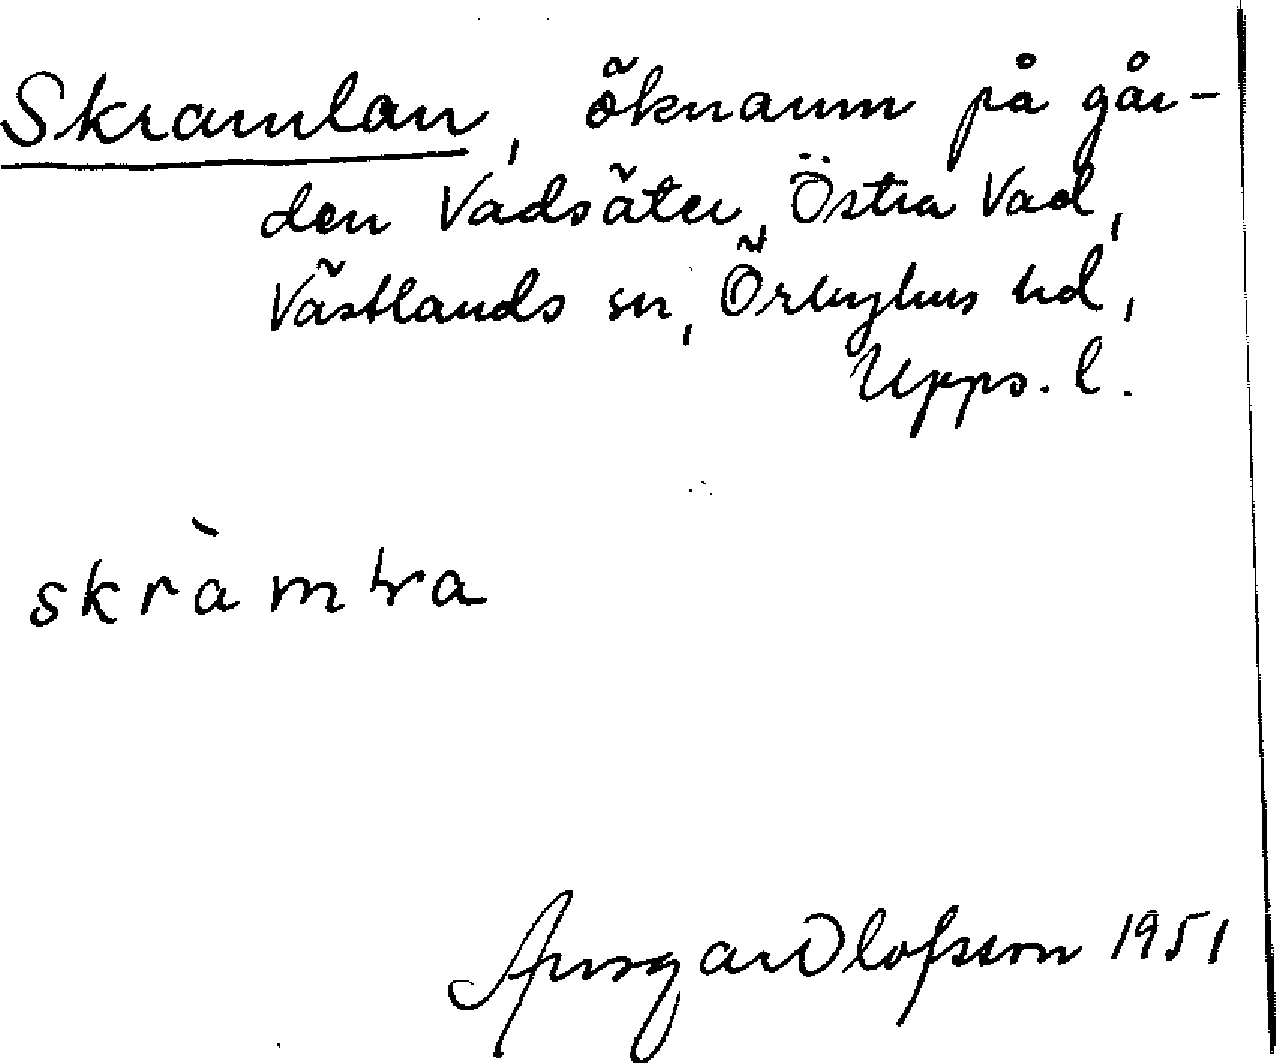 Skramlan, öknamn på går-
den Vadsäter, Östra Vad,
Västlands sn, Örbyhus hd,
Upps. l.
Ansgar Olofsson 1951